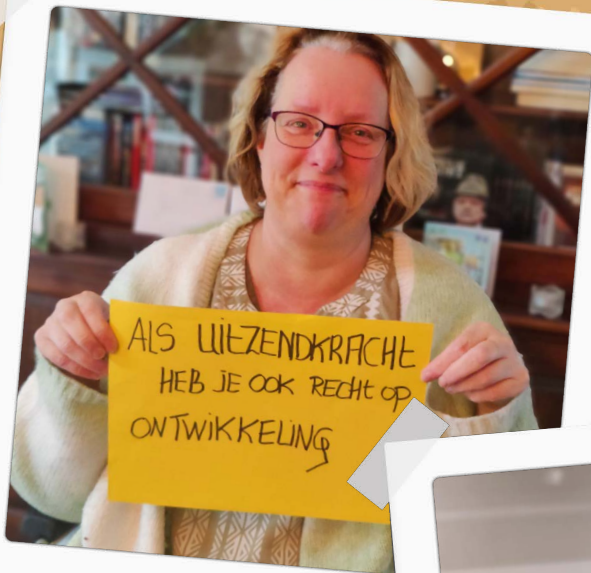 ALS UITZENDKRACHT
HEB JE OOK RECHT OP
ONTWIKKELING